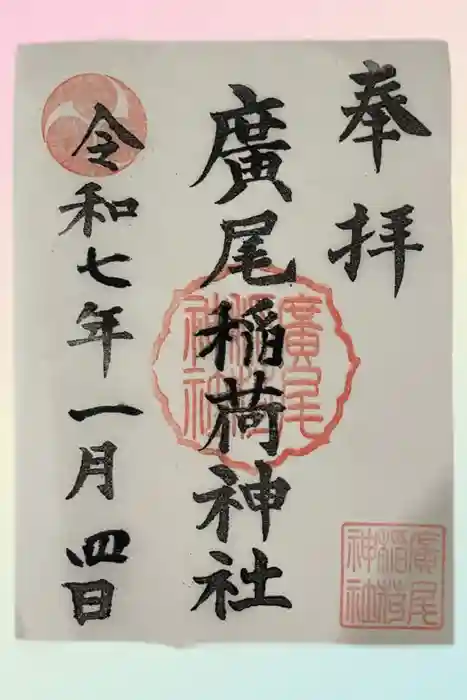 奉拝
廣尾稲荷神社
令和七年一月四日
廣尾
稲荷
神社
廣尾
稲荷
神社